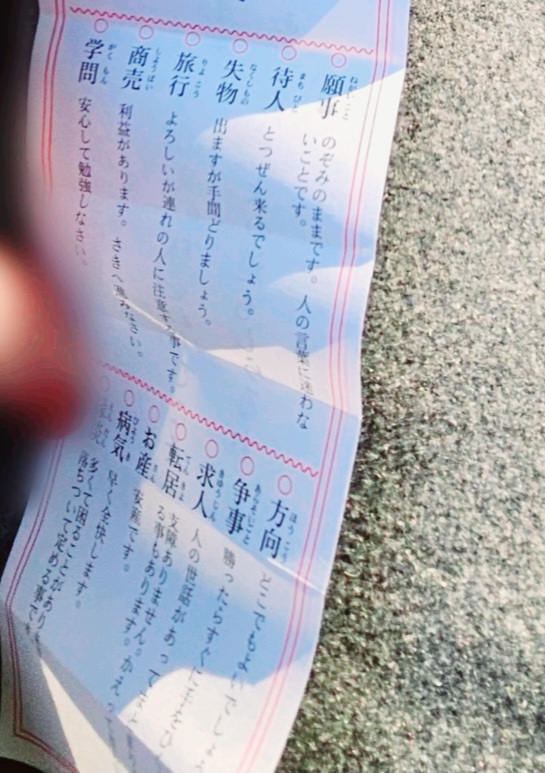 願事 のぞみのままです。人の言葉に迷わな
いことです。
待人 とつぜん来るでしょう。
失物 出ますが手間どりましょう。
旅行 よろしいが連れの人に注意する事です。
商売 利益があります。さきへ進みなさい。
学問 安心して勉強しなさい。
方向 どこでもよいでしょ
争事 勝ったらすぐに手をひ
求人 人の世話があって
転居 支障ありません。かえって
る事もあります。
お産 安産です。
病気 早く全快します。
多くて困ることがあり
落ちついて定める事で